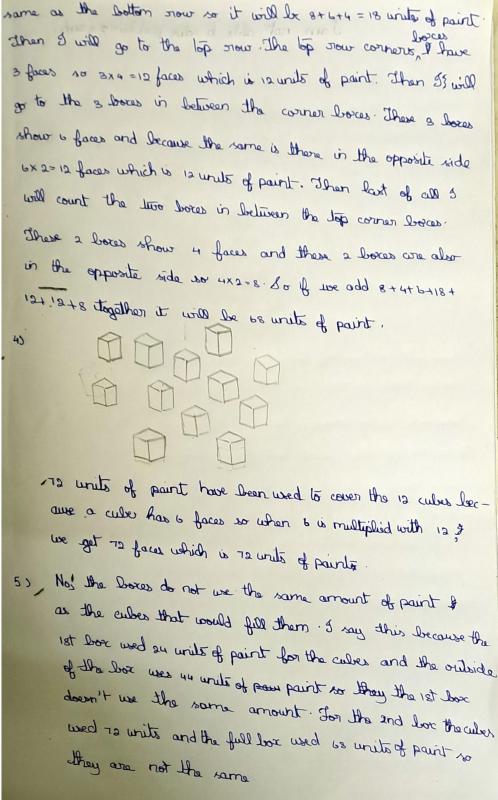 same as the bottom row so it will be 8+6+4 = 18 units of paint.
Then I will go to the top row. The top row corners boxes, I have
3 faces so 3x4 = 12 faces which is 12 units of paint. Then I will
go to the 3 boxes in between the corner boxes. These 3 boxes
show 6 faces and because the same is there in the opposite side
6x2 = 12 faces which is 12 units of paint. Then last of all I
will count the two boxes in between the top corner boxes.
These 2 boxes show 4 faces and these 2 boxes are also
in the opposite side so 4x2=8. So if we add 8+4+6+18+
12+12+8 together it will be 68 units of paint.
4)
72 units of paint have been used to cover the 12 cubes bec-
ause a cube has 6 faces so when 6 is multiplied with 12,
we get 72 faces which is 72 units of paint.
5) No! the boxes do not use the same amount of paint
as the cubes that would fill them. I say this because the
1st box used 24 units of paint for the cubes and the outside
of the box uses 44 units of paint so they the 1st box
doesn't use the same amount. For the 2nd box the cubes
used 72 units and the full box used 68 units of paint so
they are not the same